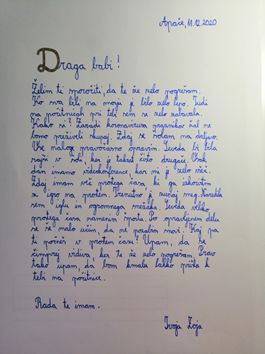 Apače, 11.12.2020
Draga babi!
Želim ti sporočiti, da te že zelo pogrešam.
Ko sva bili na morju je bilo zelo lepo. Tudi
na počitnicah pri tebi sem se zelo zabavala.
Kako si? Zaradi koronavirusa prazničnih dni ne
bomo preživeli skupaj. Zdaj se šolam na daljavo.
Vse naloge pravočasno opravim. Seveda bi bila
rajši v šoli, ker je takrat čisto drugače. Vsak
dan imamo videokonference, kar mi je zelo všeč.
Zdaj imam več prostega časa, ki ga izkoristim
za igro na prostem.
sem iglu in ogromnega snežaka. Seveda veliko
prostega časa namenim športu. Po opravljenem delu
se še malo učim, da ne pozabim snovi. Kaj pa
ti počneš v prostem času? Upam, da te
čimprej vidiva, ker te že zelo pogrešam. Prav
tako upam, da bom kmalu lahko prišla k
tebi na počitnice.
Rada te imam.
Tvoja Zoja